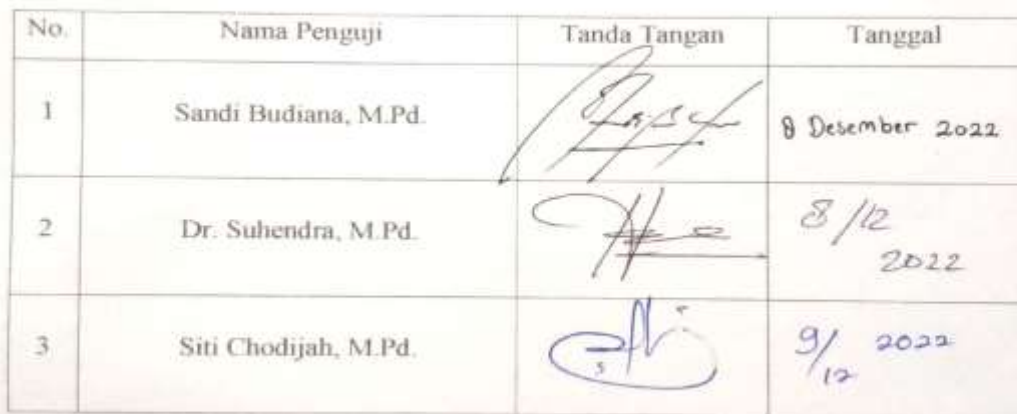 No. Nama Penguji Tanda Tangan Tanggal
1 Sandi Budiana, M.Pd. 8 Desember 2022
2 Dr. Suhendra, M.Pd. 8/12
2022
3 Siti Chodijah, M.Pd. 9/12 2022